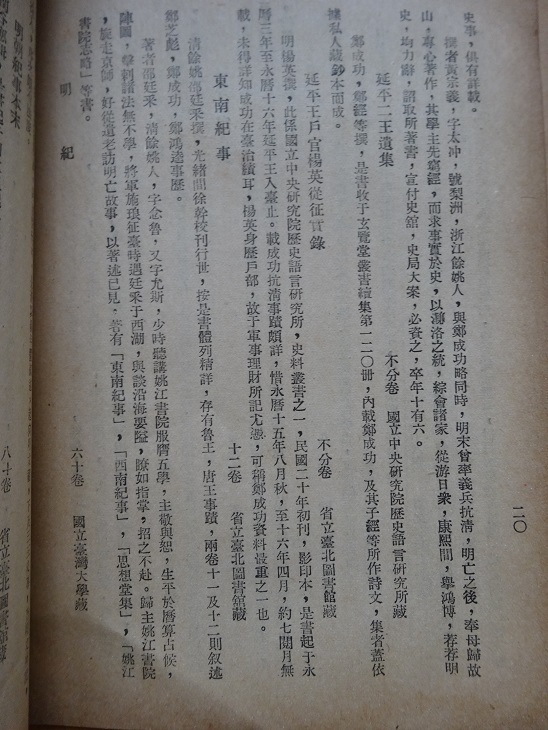 二〇
史事，俱有詳載。
撰者黃宗義，字太冲，號梨洲，浙江餘姚人，與鄭成功略同時，明末曾率義兵抗清，明亡之後，奉母歸故
山，專心著作，其學主先窮經，而求事實於史，以濂洛之統，綜會諸家，從游日衆，康熙間，舉鴻博，荐荐明
史，均力辭，詔取所著書，宣付史舘，史局大案，必資之，卒年十有六。
延平二王遺集
不分卷　國立中央研究院歷史語言研究所藏
鄭成功，鄭經等撰，是書收于玄覽堂叢書續集第一二〇冊，內載鄭成功，及其子經等所作詩文，集者蓋依
據私人藏鈔本而成。
延平王戶官楊英從征實錄
不分卷　省立臺北圖書館藏
明楊英撰，此係國立中央研究院歷史語言研究所，史料叢書之一，民國二十年初刊，影印本，是書起于永
曆三年至永曆十六年延平王入臺止。載成功抗清事蹟頗詳，惜永曆十五年八月秋，至十六年四月，約七閱月無
載，未得詳知成功在臺治蹟耳，楊英身歷戶部，故于軍事理財所記尤悉，可稱鄭成功資料最重之一也。
東南紀事
十二卷　省立臺北圖書舘藏
清餘姚邵廷釆撰，光緒間徐幹校刊行世，按是書體列精詳，存有魯王，唐王事蹟，兩卷十一及十二則叙述
鄭芝彪，鄭成功，鄭鴻逵事歷。
著者邵廷釆，清餘姚人，字念魯，又字尤斯，少時聽講姚江書院服膺五學，主敬與恕，生平於曆算占候，
陳圖，擊刺諸法無不學，將軍施琅征臺時遇廷釆于西湖，與談沿海要隘，瞭如指掌，招之不赴。歸主姚江書院
，旋走京師，好從遺老訪明亡故事，以著述已見，著有「東南紀事」，「西南紀事」，「思想堂集」，「姚江
書院志略」等書。
明　紀
六十卷　國立臺灣大學藏
明朝紀事本末
八十卷　省立臺北圖書館藏